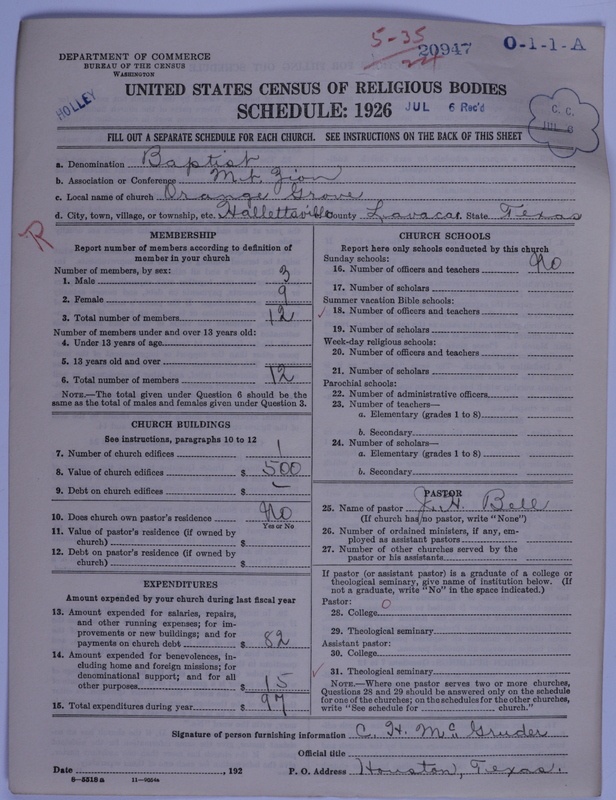 5-35
20947
O-1-1-A
DEPARTMENT OF COMMERCE
BUREAU OF THE CENSUS
WASHINGTON
HOLLEY
UNITED STATES CENSUS OF RELIGIOUS BODIES
SCHEDULE: 1926
JUL 6 Rec'd
C. C.
JUL 8
FILL OUT A SEPARATE SCHEDULE FOR EACH CHURCH. SEE INSTRUCTIONS ON THE BACK OF THIS SHEET
a. Denomination Baptist
b. Association or Conference Mt. Zion
c. Local name of church Orange Grove
d. City, town, village, or township, etc. Hallettsville County Lavaca State Texas
R
MEMBERSHIP
Report number of members according to definition of
member in your church
Number of members, by sex:
1. Male 3
2. Female 9
3. Total number of members 12
Number of members under and over 13 years old:
4. Under 13 years of age
5. 13 years old and over
6. Total number of members 12
NOTE.—The total given under Question 6 should be the
same as the total of males and females given under Question 3.
CHURCH BUILDINGS
See instructions, paragraphs 10 to 12
7. Number of church edifices 1
8. Value of church edifices $ 500
9. Debt on church edifices $ –
10. Does church own pastor's residence No
Yes or No
11. Value of pastor's residence (if owned by
church) $
12. Debt on pastor's residence (if owned by
church) $
EXPENDITURES
Amount expended by your church during last fiscal year
13. Amount expended for salaries, repairs,
and other running expenses; for im-
provements or new buildings; and for
payments on church debt $ 82
14. Amount expended for benevolences, in-
cluding home and foreign missions; for
denominational support; and for all
other purposes $ 15
15. Total expenditures during year $ 97
CHURCH SCHOOLS
Report here only schools conducted by this church
Sunday schools:
16. Number of officers and teachers No
17. Number of scholars
Summer vacation Bible schools:
18. Number of officers and teachers
19. Number of scholars
Week-day religious schools:
20. Number of officers and teachers
21. Number of scholars
Parochial schools:
22. Number of administrative officers
23. Number of teachers—
a. Elementary (grades 1 to 8)
b. Secondary
24. Number of scholars—
a. Elementary (grades 1 to 8)
b. Secondary
PASTOR
25. Name of pastor J. H. Bell
(If church has no pastor, write "None")
26. Number of ordained ministers, if any, em-
ployed as assistant pastors
27. Number of other churches served by the
pastor or his assistants
If pastor (or assistant pastor) is a graduate of a college or
theological seminary, give name of institution below. (If
not a graduate, write "No" in the space indicated.)
Pastor:
28. College O
29. Theological seminary
Assistant pastor:
30. College
31. Theological seminary
NOTE.—Where one pastor serves two or more churches,
Questions 28 and 29 should be answered only on the schedule
for one of the churches; on the schedules for the other churches,
write "See schedule for church."
Signature of person furnishing information C. H. McGruder
Official title
Date , 192 P. O. Address Houston, Texas.
8—5518 a 11—9054a